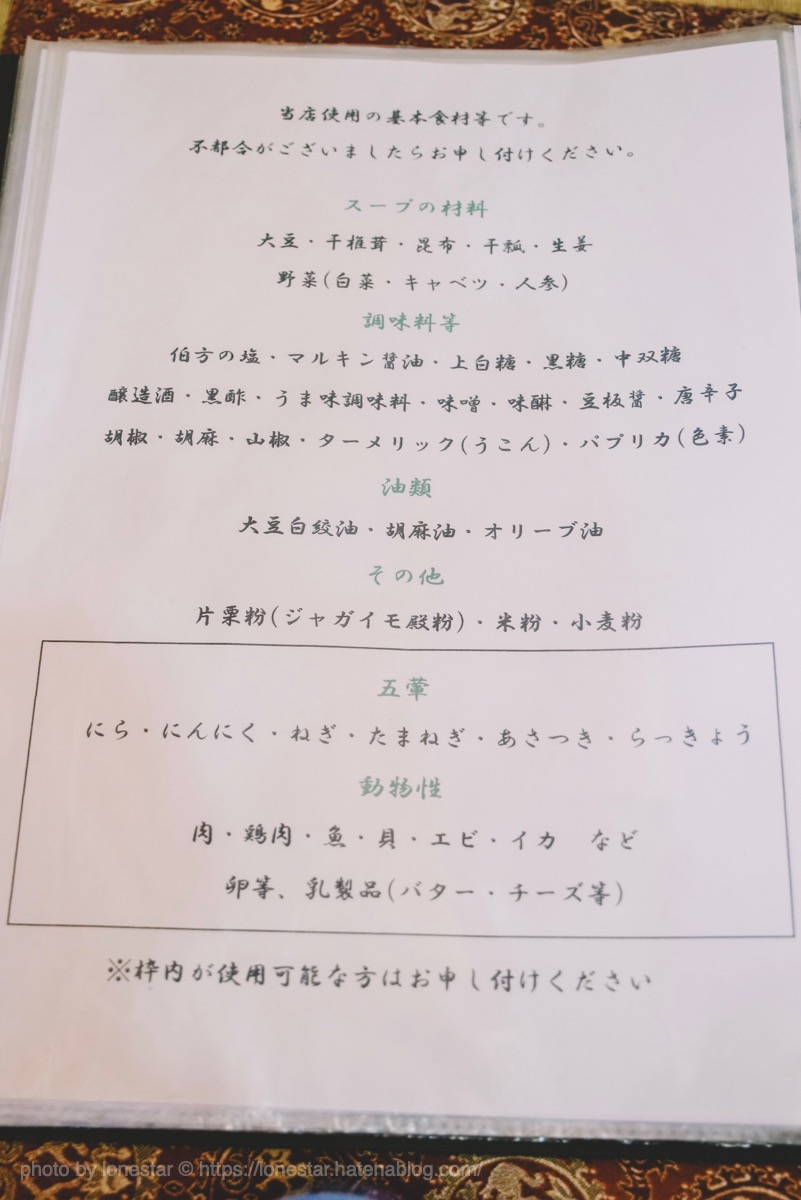 当店使用の基本食材等です。
不都合がございましたらお申し付けください。
スープの材料
大豆・干椎茸・昆布・干瓢・生姜
野菜(白菜・キャベツ・人参)
調味料等
伯方の塩・マルキン醤油・上白糖・黒糖・中双糖
醸造酒・黒酢・うま味調味料・味噌・味醂・豆板醤・唐辛子
胡椒・胡麻・山椒・ターメリック(うこん)・パプリカ(色素)
油類
大豆白絞油・胡麻油・オリーブ油
その他
片栗粉(ジャガイモ殿粉)・米粉・小麦粉
五葷
にら・にんにく・ねぎ・たまねぎ・あさつき・らっきょう
動物性
肉・鶏肉・魚・貝・エビ・イカ　など
卵等、乳製品(バター・チーズ等)
※枠内が使用可能な方はお申し付けください
photo by lonestar © https://lonestar.hatenablog.com/